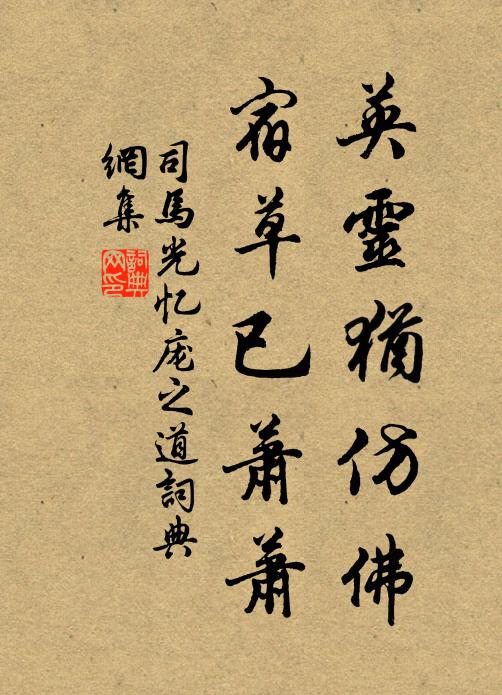 英靈猶仿佛
宿草已蕭蕭
司馬光忆庞之道詞典
網集
詞典
网印